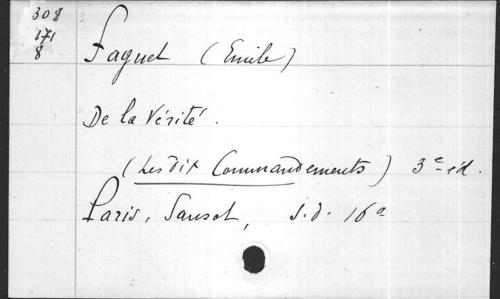 308
171
8
Faguet (Emile)
De la Vérité.
(Les Dix Commandements) 3e éd.
Paris, Sansot, s.d. 16°